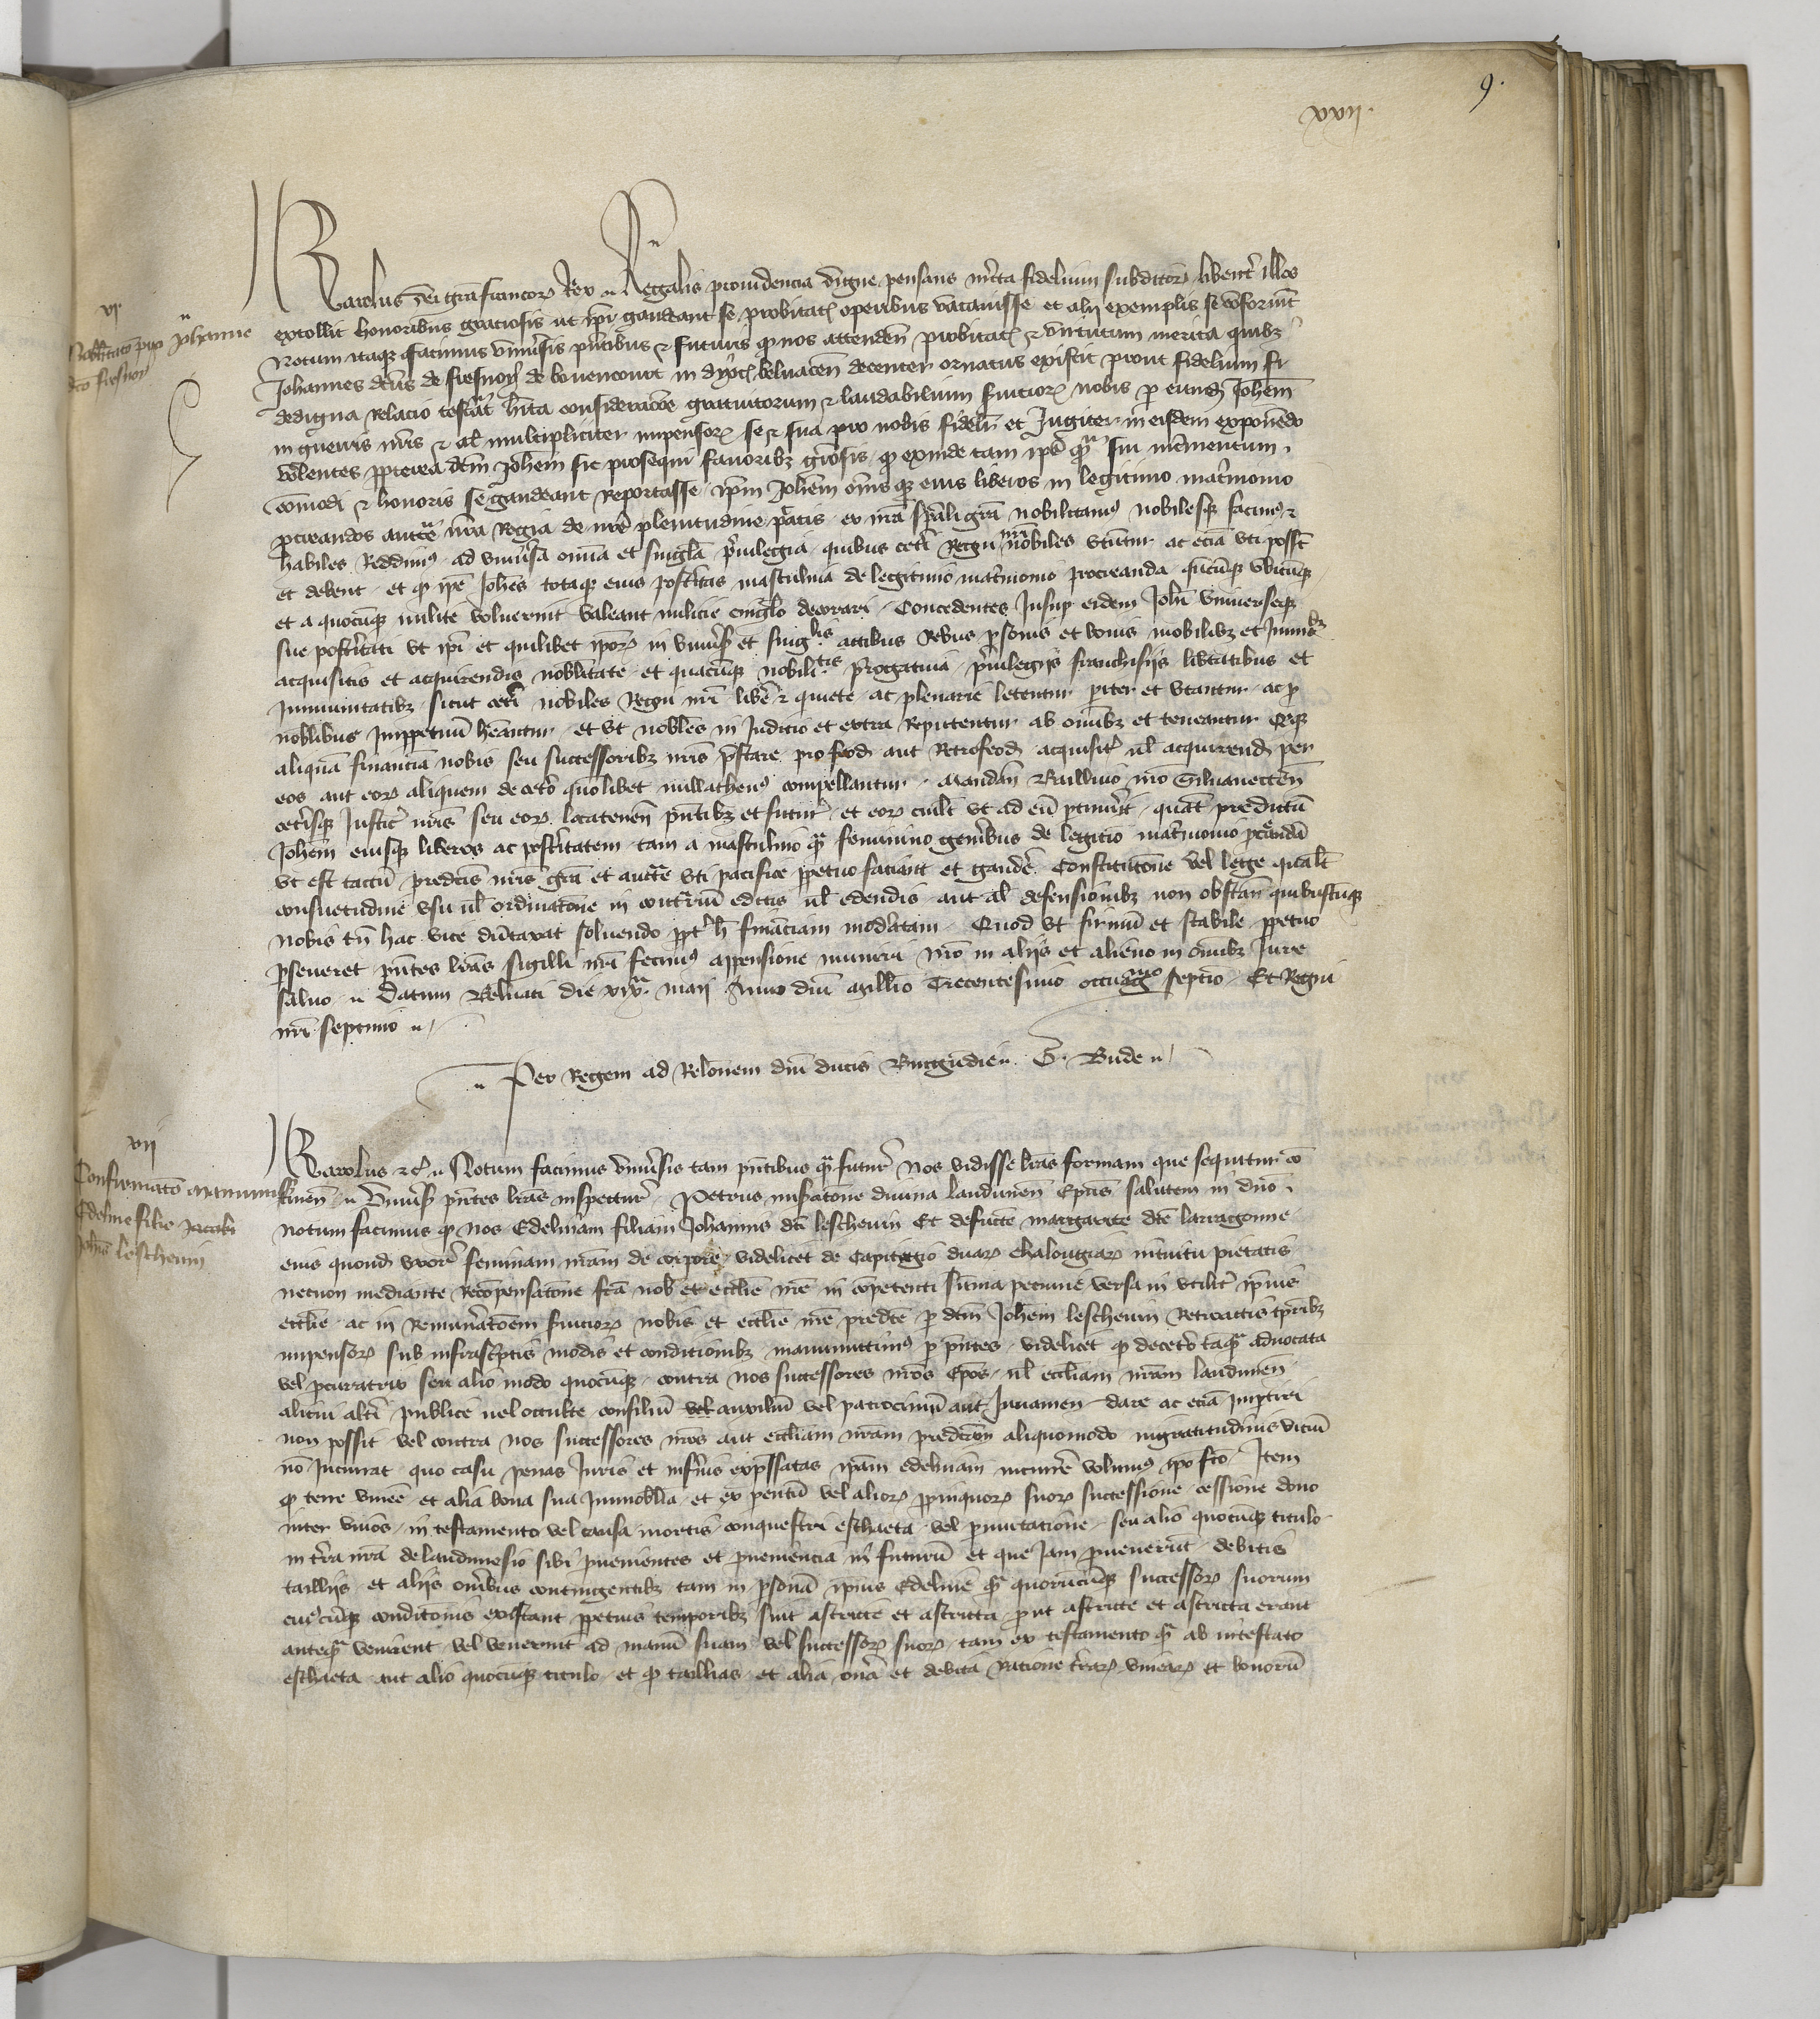 9.
xxij.
vj.
Nobilitatio pro Johanne
dco fresnoy
Karolus dei gra francor Rex Regalis prouidencia digne pensans mita fidelium subditor libent illos
extollit honoribus graciosis ut ipi gaudeant se probitatis operibus vacauisse et alij exemplis se confor
Notum itaque facimus vniusis pntibus et futuris quod nos attenden probitatis et virtutum merita quibz
Johannes dcus de fresnoy de bouencourt in dyoc beluacen decenter ornatus existit prout fidelium fi
dedigna relacio testat hita consideracoe gratuitorum et laudabilium suicior nobis per eund Johem
in guerris nris et al multipliciter impensor se et sua pro nobis fidelr et Jugiter in eisdem exponendo
volentes propterea dcm Johem sic prosequi fauoribz grosis quod exinde tam ipe quam sui incrementum
comodi et honoris se gaudeant reportasse ipm Johem omsque eius liberos in legitimo matrimonio
procreandos aucte nra Regia de nre plenitudine ptatis ex nra spali gra nobilitamus nobilesque facimus et
habiles reddimus ad vniusa omia et singla priuilegia quibus ceti Regni nri nobiles vtuntur ac eciam vti posst
et debent et quod ipe Johes totaque eius postitas masculina de legitimo matrimonio procreanda quicunque vbicunque
et a quocunque milite voluerint valeant milicie cinglo decorari Concedentes Insup eidem Johi vniuerseque
sue postitati vt ipi et quilibet ipor in vniusis et singlis actibus rebus psonis et bonis mobilibz et Immobz
acquisitis et acquirendis nobilitate et quacunque nobilitatis progatiua priuilegijs franchisijs libtatibus et
Immunitatibz sicut ceti nobiles Regni nri libe et quiete ac plenarie letentur pariter et vtantur ac pro
nobilibus Imppetuum heantur et vt nobiles in Judicio et extra reputentur ab omibz et teneantur Absque
aliquam financiam nobis seu successoribz nris pstare pro feod aut retrofeod acquisit ul acquirend per
eos aut eor aliquem de ceto quolibet nullathenus compellantur mandan Bailliuo nro Siluanecten
cetisque Justic nris seu eor locatenen pntibz et futur et eor cuilt vt ad eum ptinuit quat predictum
Johem eiusque liberos ac postitatem tam a masculino quam feminino genibus de legitio matrimonio pcreandam
vt est tactum predcis nris gra et aucte vti pacifice ppetuo faciant et gaude Constitucone vel lege qualt
consuetudine vsu ul ordinacone in contrium editis ul edendis aut al defensionibz non obstan quibuscunque
nobis tn hac vice dumtaxat soluendo ppt h financiam moderatam Quod vt firmum et stabile ppetuo
pseueret pntes lras sigilli nri fecimus appensione muniri nro in alijs et alieno in omibz Jure
saluo Datum Beluaci die xixa maij Anno dni millio Trecentesimo octuagmo septio Et Regni
nri septimo
Per Regem ad Relonem dni ducis Burgundie G. Bude
vij
Confirmato manumiss
Edeline filie Jacobi
Johis lescheuin
Karolus etc Notum facimus vniusis tam pntibus quam futur Nos vidisse lras formam que sequitur co
tinen Vniusis pntes lras inspectur Petrus misacone diuina laudunen Epus salutem in dno
notum facimus quod nos Edelinam filiam Johannis dci lescheuin Et defuncte margarete dce larragonne
eius quond vxor feminam nram de corpore videlicet de Capitagio duar chalongiar intuitu pietatis
necnon mediante recompensacone fca nob et ecclie nre in competenti summa pecunie versa in vtilit ipius
ecclie ac in remuneracoem suicior nobis et ecclie nre predce per dcm Johem lescheuin Retroactis tpribz
impensor sub infrascptis modis et condicionibz manumittimus per pntes videlicet quod deceto tamquam aduocata
vel pcuratrix seu alio modo quocunque contra nos successores nros Epos ul eccliam nram laudunen
alicui alti publice uel occulte consilium vel auxilium vel patrocinium aut Juuamen dare ac eciam impartiri
non possit vel contra nos successores nros aut eccliam nram predcam aliquomodo ingratitudinis vicium
no Incurrat quo casu penas Juris et infius expressatas ipam edelinam incurre volumus ipo fco Item
quod terre vinee et alia bona sua Immobilia et ex parentum vel alior ppinquor suor successione cessione dono
inter viuos in testamento vel causa mortis conquestu eschaeta vel pmutacione seu alio quocunque titulo
in tra nra de laudunesio sibi puenientes et puenientia in futurum et que Jam peruenerunt debitis
tailliis et aliis onibus contingentibz tam in psona ipius Edeline quam quorumcunque successor suorum
cuiuscunque condiconis existant ppetuis temporibz sint astricte et astricta put astricte et astricta erant
antequam venirent vel venerint ad manum suam vel successor suor tam ex testamento quam ab intestato
eschaeta aut alio quocunque titulo et quod taillias et alia ona et debita ratione trar vinear et bonorum